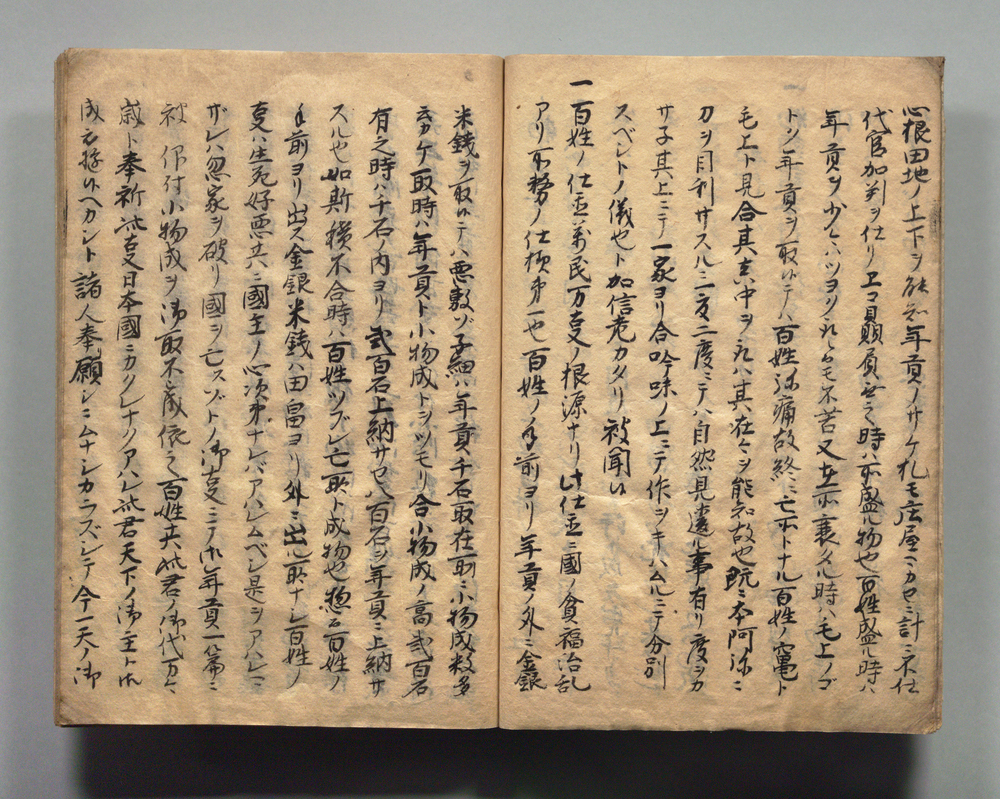 心根田地ノ上下ヲ能知年貢ノサケ札モ庄屋ニカセニ計ニ不仕
代官加判ヲ仕リエコ贔屓無之時ハ亦盛ル物也百姓盛ル時ハ
年貢ヲ少々ハツヨクトルモ不苦又在所衰久ル時ハ毛上ノゴ
トン年貢ヲ取候テハ百姓弥痛故終ニ亡所トナル百姓ノ竃ト
毛上ト見合其真中ヲトレハ其在々ヲ能知故也既ニ本阿弥ニ
刀ヲ目利サスルニ一度二度ミテハ自然見違ル事有リ度ヲカ
サ子其上ニテ一家ヨリ合吟味ノ上ニテ作ヲキハムルニテ分別
スベシトノ儀也ト加信老カタリ被聞候
一百姓ノ仕置万民万事ノ根源ナリ此仕置ニ國ノ貧福治乱
アリ所務ノ仕様第一也百姓ノ手前ヨリ年貢ノ外ニ金銀
米銭ヲ取候テハ悪敷ゾ子細ハ年貢千石取在所ニ小物成数多
云カケ取時ハ年貢ト小物成トヲツモリ合小物成ノ高弐百石
有之時ハ千石ノ内ヨリ弐百石上納サセ八百石ヲ年貢ニ上納サ
スル也如斯積不合時ハ百姓ツブレ亡所ト成物也惣而百姓ノ
手前ヨリ出ス金銀米銭ハ田畠ヨリ外ニ出ル所ナシ百姓ノ
事ハ生死好悪共ニ國主ノ心次第ナレバアハレムベシ是ヲアハレマ
ザレハ忽家ヲ破リ國ヲ亡スゾトノ御事ニテ御年貢一篇ニ
被 仰付小物成ヲ御取不成依之百姓共此君ノ御代万々
歳ト奉祈此事日本國ニカクレナクアハレ此君天下ノ御主トモ
成セ給ヘカシト諸人奉願シニムナシカラズシテ今一天ノ御